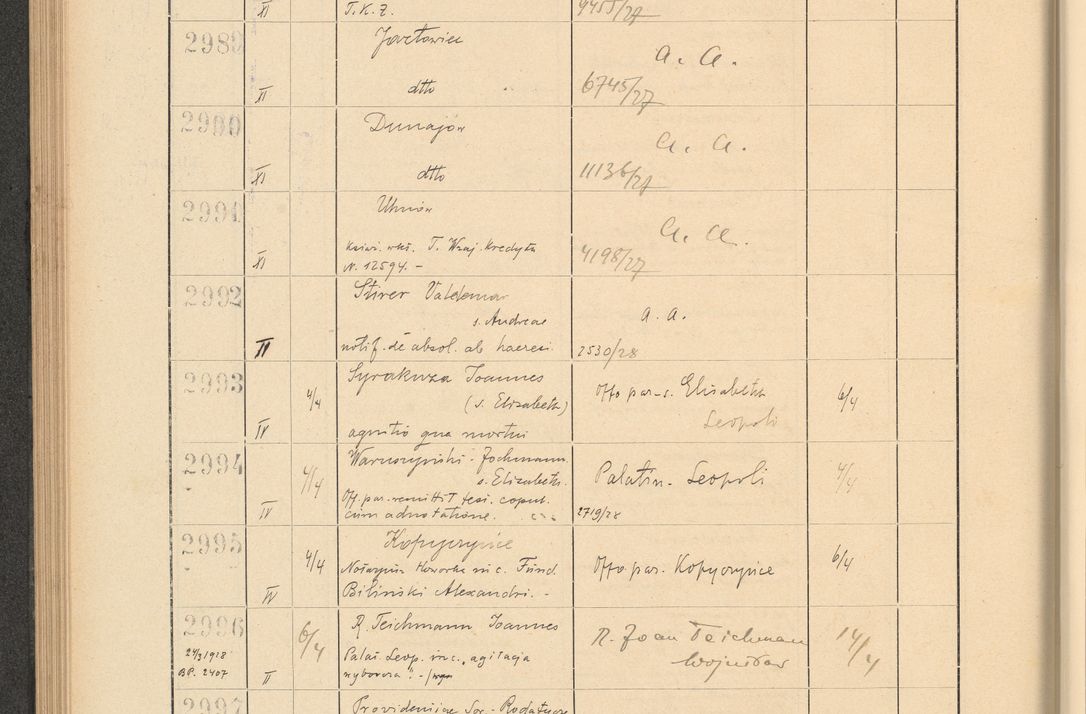 XI T. K. Z. 9455/27
2989 Jaćtowiec a. a.
XI dtto 6745/27
2990 Dunajów a. a.
XI dtto 11136/27
2991 Uhnów a. a.
T. Wzaj. Kredytu
XI N. 12594. – 4198/27
2992 Stirer Valdemar
s. Andreae a. a.
II notif. de absol. ab haeresi. 2530/28
2993 Syrakuza Ioannes Offo par. s. Elisabeth
4/4 (s. Elizabeth) 6/4
Leopoli
IV agnitio qua mortui
2994 Waruszyński - Jochmann
s. Elizabeth. Palatin. Leopoli
4/4 Off. par. remittit test. copul. 4/4
IV cum adnotatione. 2719/28
2995 Kopyczyńce
4/4 Howorka in c. Fund. Offo par. Kopyczyńce 6/4
IV Biliński Alexandri. –
2996 R. Teichmann Ioannes R. Joan Teichman
24/3 1928 6/4 Palat. Leop. in c. „agitacja 14/4
BP. 2407 II wyborcza"
2997 Providentiae Soc.